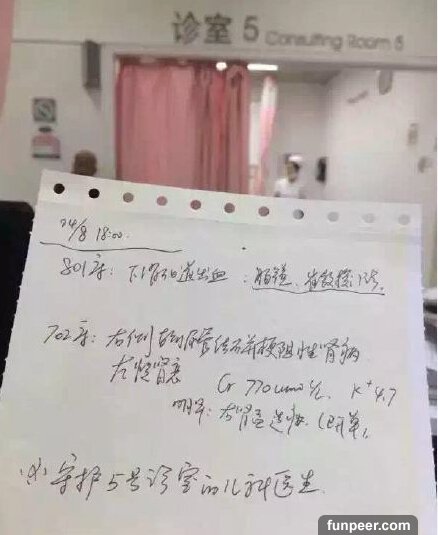 诊室 5 Consulting Room 5
24/8 18:00
801床：下消化道出血：肠镜，
702床：右侧输尿管结石并梗阻性肾病
Cr 770 umol/L K⁺ 4.7
明早：
守护5号诊室的儿科医生
funpeer.com